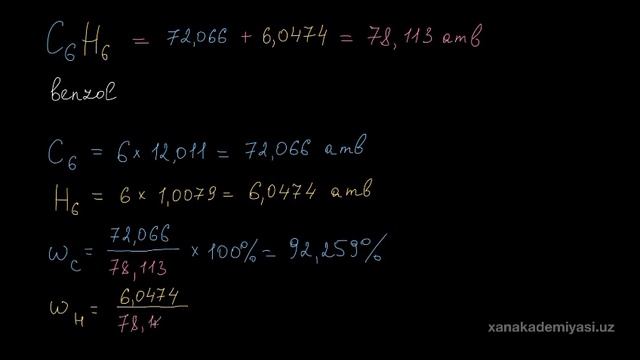 C₆H₆ = 72,066 + 6,0474 = 78,113 amb
benzol
C₆ = 6 × 12,011 = 72,066 amb
H₆ = 6 × 1,0079 = 6,0474 amb
ω_C = 72,066 / 78,113 × 100% = 92,259%
ω_H = 6,0474 / 78,1
xanakademiyasi.uz